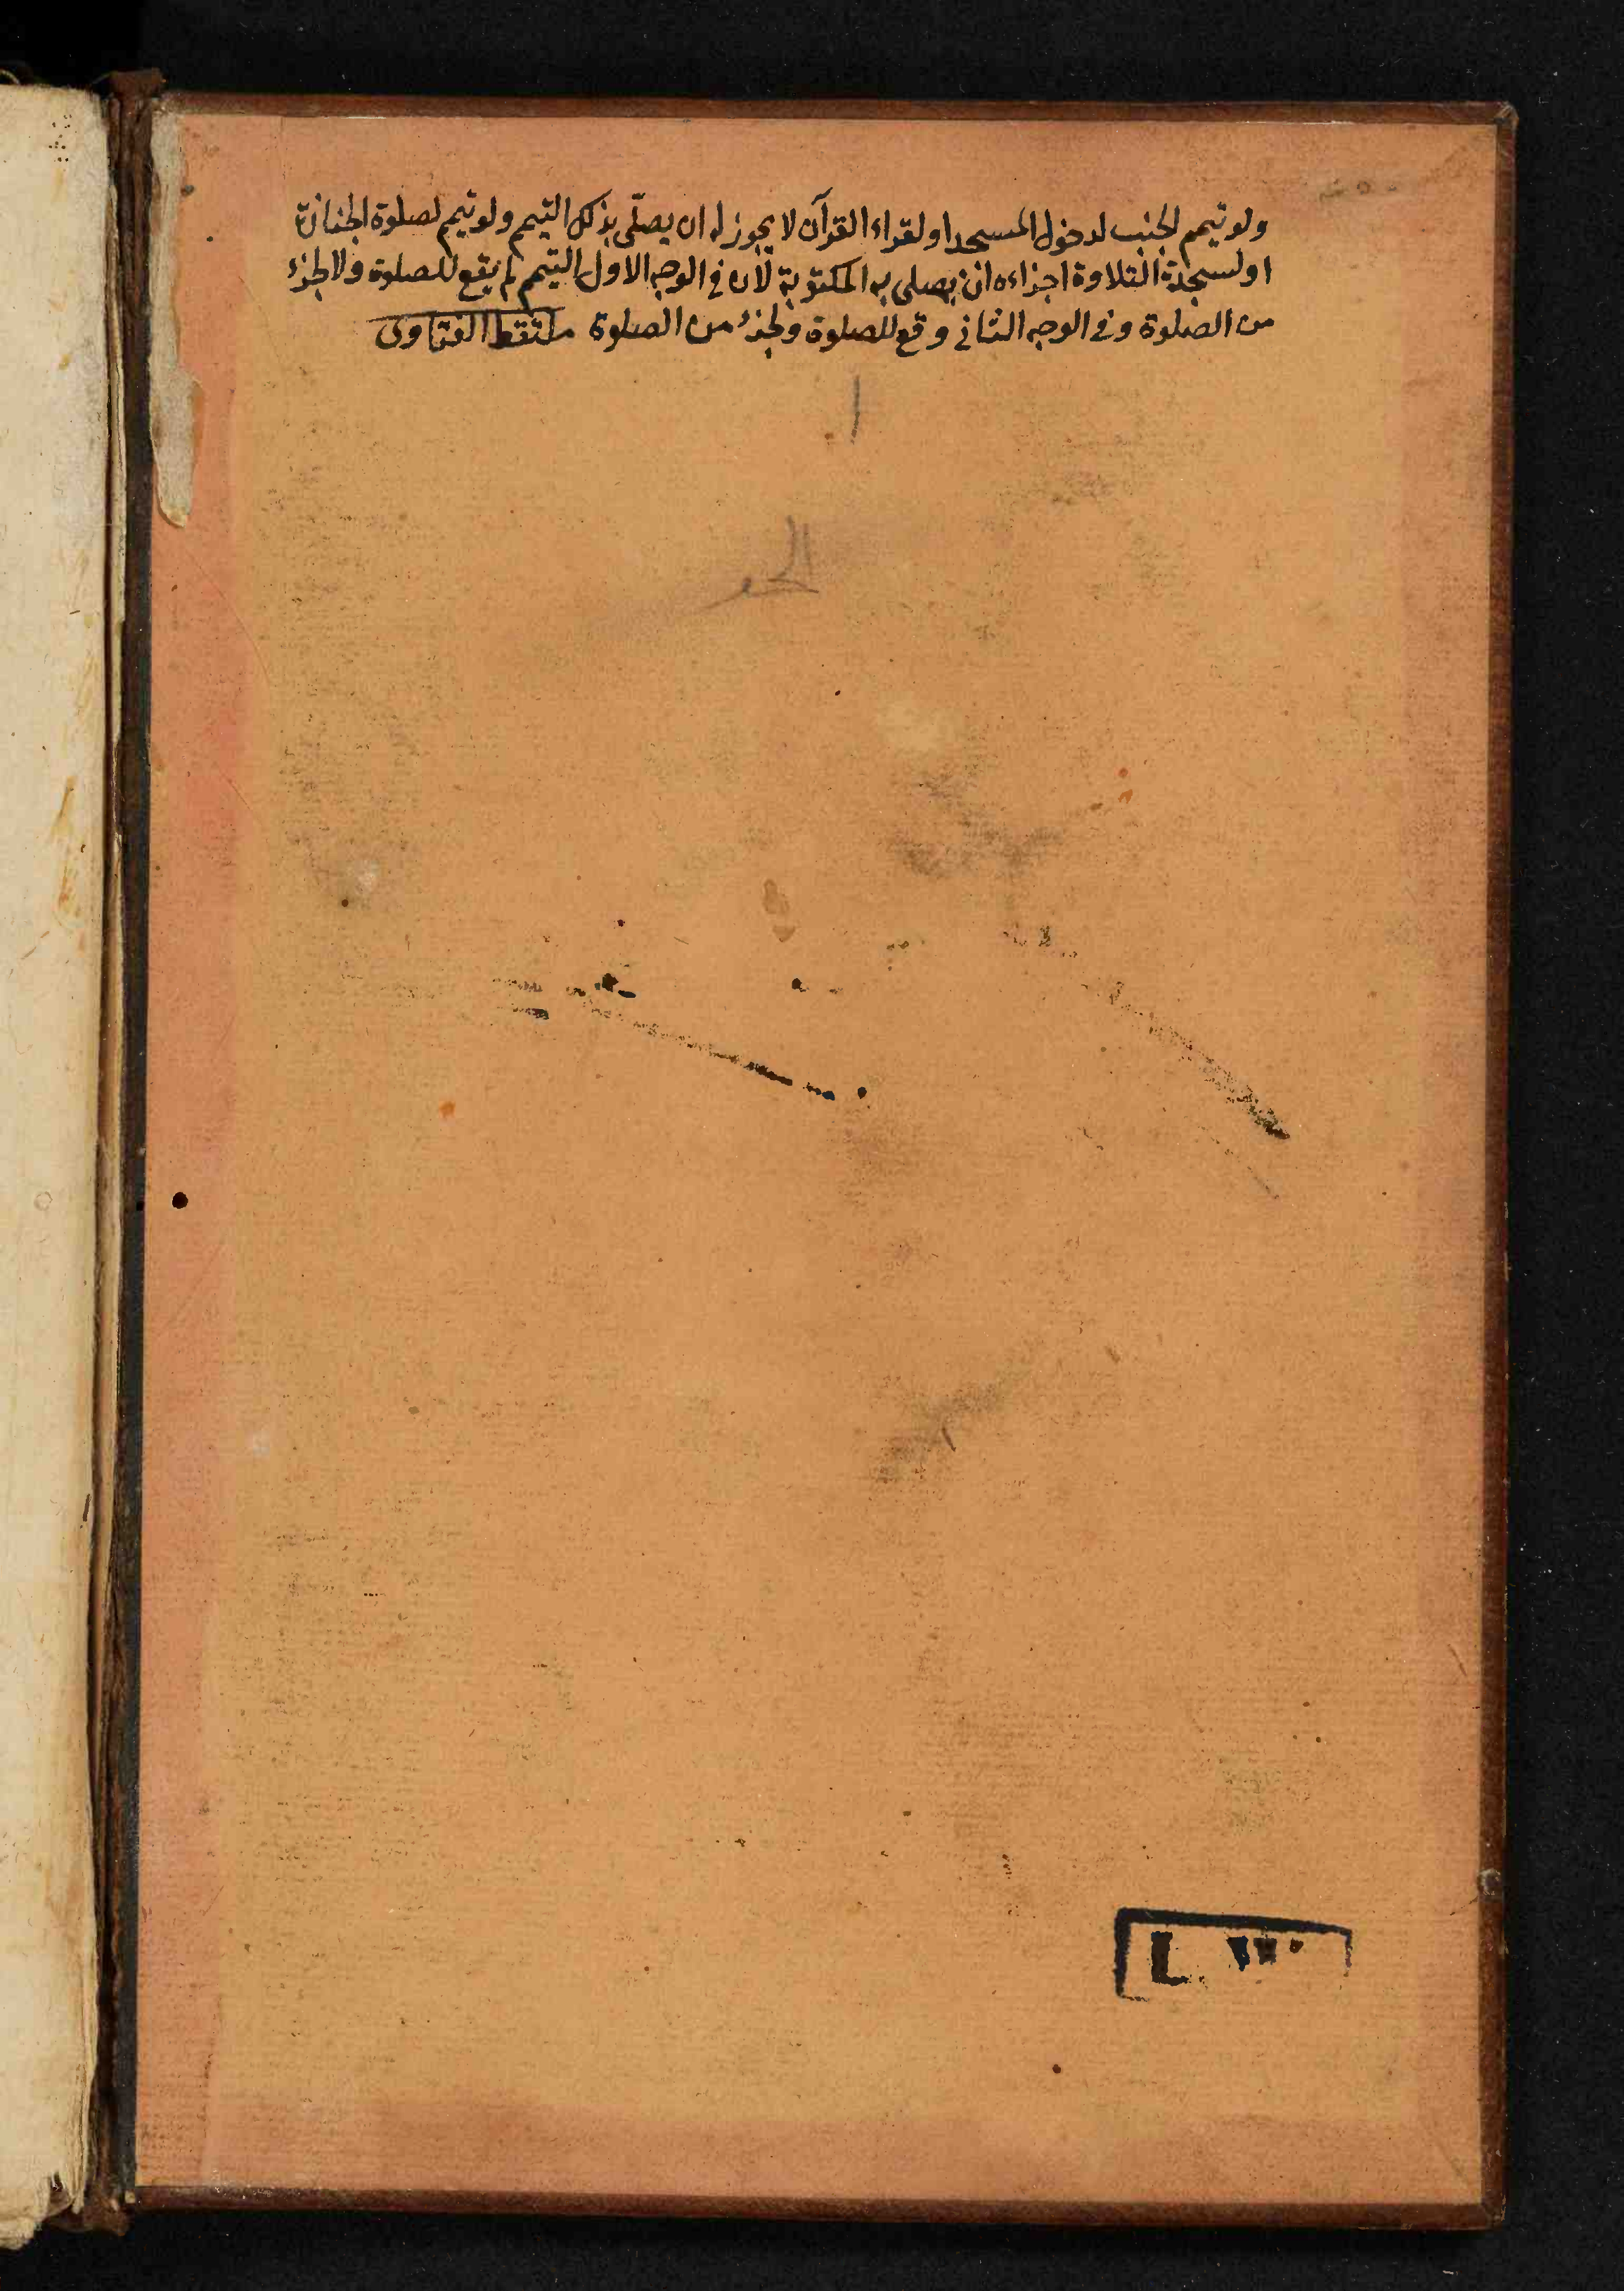 ولو تيمم الجنب لدخول المسجد او لقراءة القرآن لا يجوز له ان يصلّى بذلك التيمم ولو تيمم لصلوة الجنازة
او لسجدة التلاوة اجزاءه ان يصلى به المكتوبة لان فى الوجه الاول التيمم لم يقع للصلوة ولا لجزء
من الصلوة وفى الوجه الثانى وقع للصلوة ولجزء من الصلوة ملتقط الفتاوى